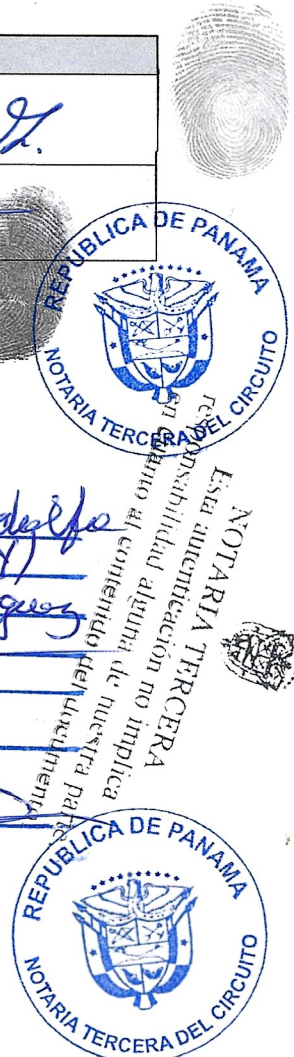 REPUBLICA DE PANAMA
NOTARIA TERCERA DEL CIRCUITO
NOTARIA TERCERA
Esta autenticación no implica
responsabilidad alguna de nuestra parte
en cuanto al contenido del documento
REPUBLICA DE PANAMA
NOTARIA TERCERA DEL CIRCUITO